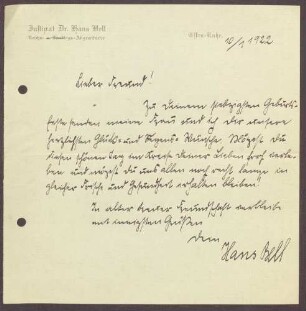 Justizrat Dr. Hans Bell
Essen-Ruhr, 10/1 1922
Lieber Freund!
Zu Deinem siebzigsten Geburts-
feste senden meine Frau und ich Dir unsere
herzlichsten Glück- und Segens-Wünsche. Mögest Du
diesen schönen Tag im Kreise Deiner Lieben froh verle-
ben und mögest Du uns allen noch recht lange in
gleicher Frische und Gesundheit erhalten bleiben!
In alter treuer Freundschaft verbleibe
mit innigsten Grüßen
Dein
Hans Bell